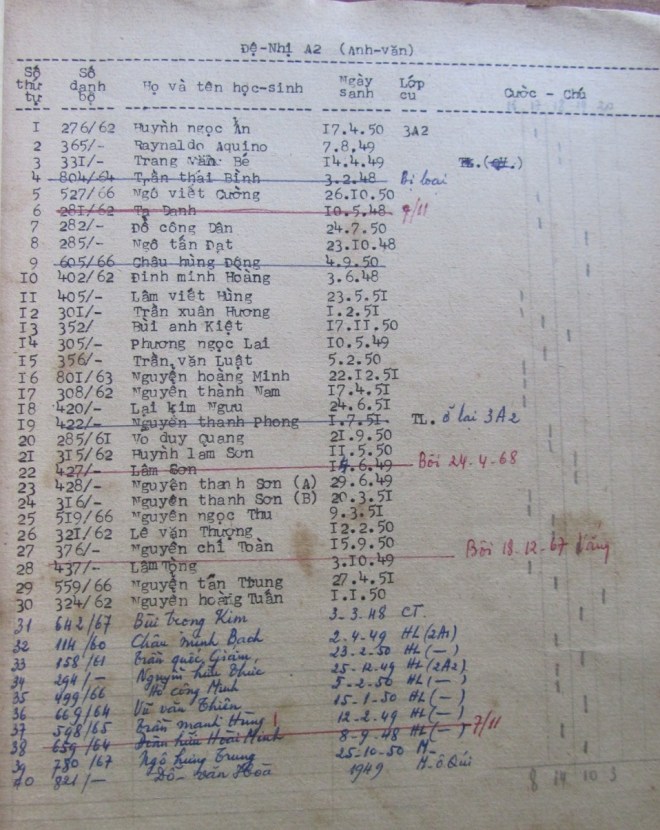 Đệ-Nhị A2 (Anh-văn)
Số thứ tự Số danh bộ Họ và tên học-sinh Ngày sanh Lớp cu Cước - Chú
I 276/62 Huỳnh ngọc Ẩn I7.4.50 3A2
2 365/- Raynaldo Aquino 7.8.49
3 33I/- Trang Văn Bé I4.4.49 TL.
4 804/64 Trần thái Bình 3.2.48 Bị loại
5 527/66 Ngô viết Cường 26.I0.50
6 28I/62 Tạ Danh I0.5.48 7/11
7 282/- Đỗ công Dân 24.7.50
8 285/- Ngô tấn Đạt 23.I0.48
9 605/66 Châu hùng Động 4.9.50
I0 402/62 Đinh minh Hoàng 3.6.48
II 405/- Lâm viết Hùng 23.5.5I
I2 30I/- Trần xuân Hương I.2.5I
I3 352/ Bùi anh Kiệt I7.II.50
I4 305/- Phương ngọc Lai I0.5.49
I5 356/- Trần văn Luật 5.2.50
I6 80I/63 Nguyễn hoàng Minh 22.I2.5I
I7 308/62 Nguyễn thành Nam I7.4.5I
I8 420/- Lại kim Ngưu 24.6.5I
I9 422/- Nguyễn thanh Phong I.7.5I TL. ở lại 3A2
20 285/6I Vo duy Quang 2I.9.50
2I 3I5/62 Huỳnh lam Sơn II.5.50
22 427/- Lâm Sơn 6.49 Bôi 24-4-68
23 428/- Nguyễn thanh Sơn (A) 29.6.49
24 3I6/- Nguyễn thanh Sơn (B) 20.3.5I
25 5I9/66 Nguyễn ngọc Thu 9.3.5I
26 32I/62 Lê văn Thượng I2.2.50
27 376/- Nguyễn chí Toàn I5.9.50 Bôi 18-12-67
28 437/- Lâm Tòng 3.I0.49
29 559/66 Nguyễn tấn Trung 27.4.5I
30 324/62 Nguyễn hoàng Tuấn I.I.50
31 642/67 Bùi trọng Kim 3-3-48 CT.
32 114/60 Châu minh Bạch 2-4-49 HL(2A1)
33 158/61 Trần quốc Giám 23-2-50 HL(—)
34 294/- Nguyễn hữu Phúc 25-12-49 HL(2A2)
35 499/66 Hồ công Minh 5-2-50 HL(—)
36 669/64 Vũ văn Thiên 15-1-50 HL(—)
37 598/65 Trần mạnh Hùng 12-2-49 HL(—)
38 659/64 Trần hữu Hoài Minh 8-9-48 HL(—) 7/11
39 780/67 Ngô hưng Trung 25-10-50 M
40 821/— Đỗ văn Hoà 1949
8 14 10 3